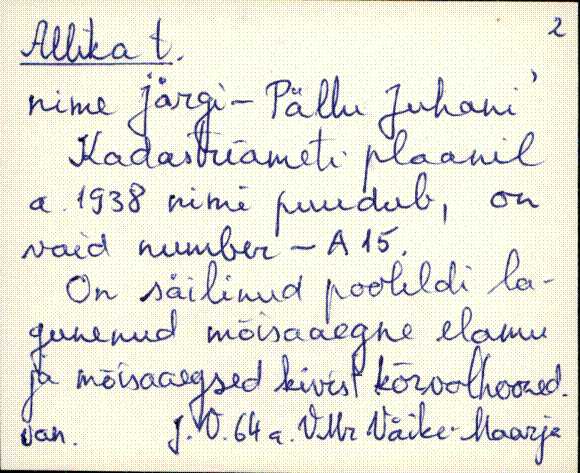 2
Allika t.
nime järgi – Pällu Juhani'
Kadastriameti plaanil
a. 1938 nimi puudub, on
vaid number – A 15.
On säilinud pooleldi la-
gunenud mõisaaegne elamu
ja mõisaaegsed kivist kõrvalhooned.
van. J. V. 64 a. VMr Väike-Maarja